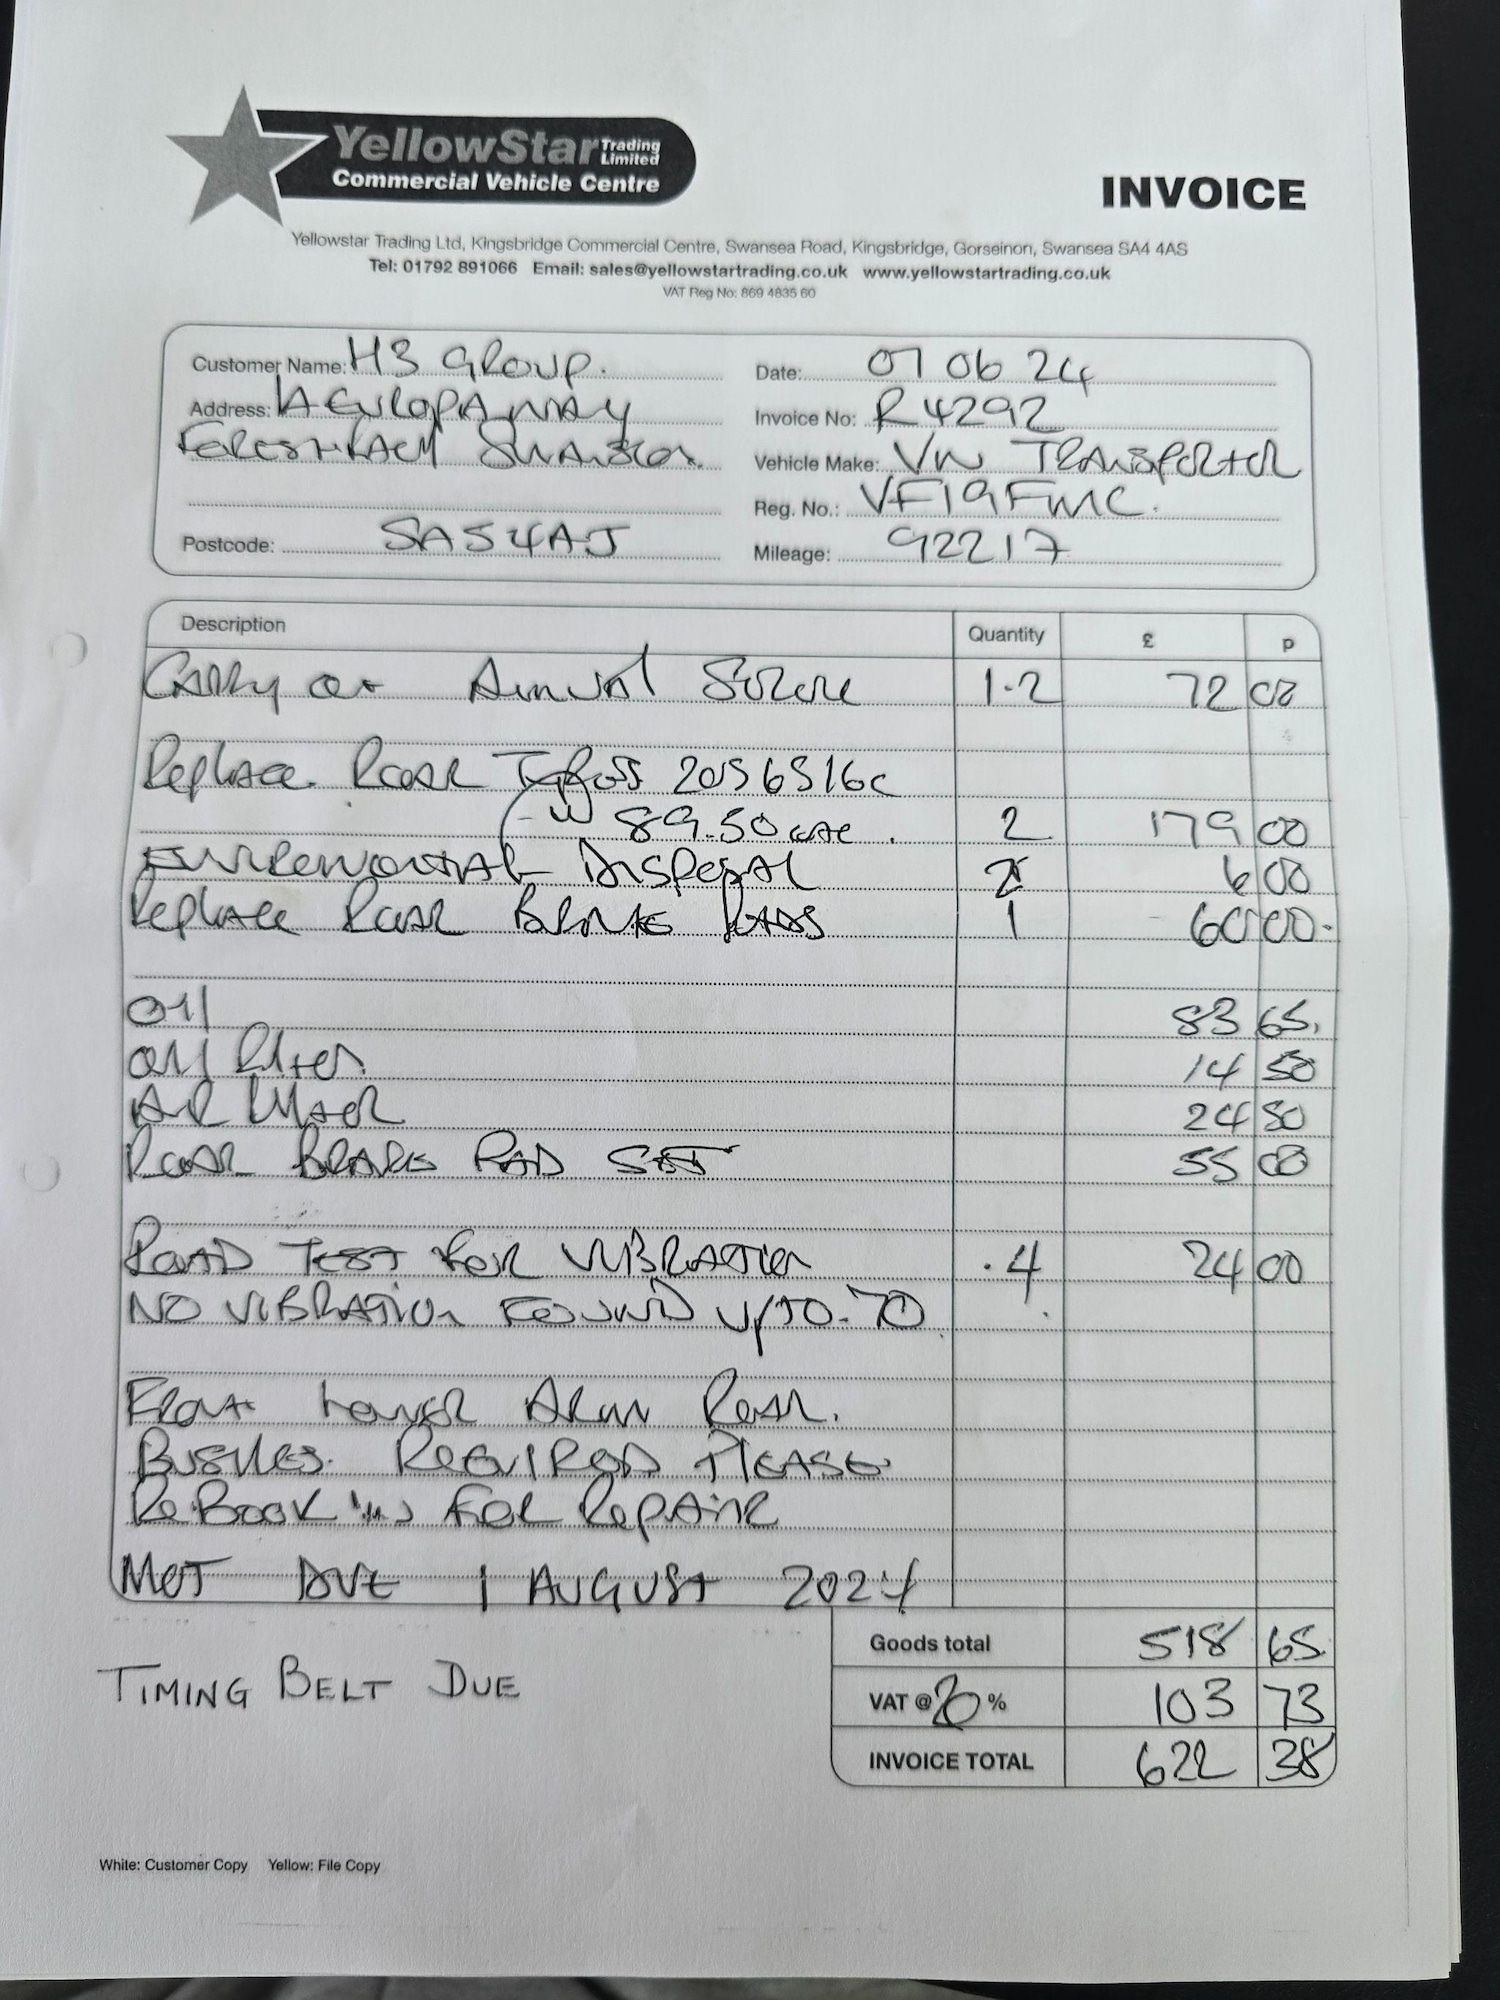 YellowStar Trading Limited
Commercial Vehicle Centre
INVOICE
Yellowstar Trading Ltd, Kingsbridge Commercial Centre, Swansea Road, Kingsbridge, Gorseinon, Swansea SA4 4AS
Tel: 01792 891066 Email: sales@yellowstartrading.co.uk www.yellowstartrading.co.uk
VAT Reg No: 869 4835 60
Customer Name: H3 GROUP. Date: 07 06 24
Address: EUROPA WAY Invoice No: R4292
FORESTFACH SWANSEA Vehicle Make: VW TRANSPORTER
Reg. No.: VF19FMC.
Postcode: SA54AJ Mileage: 92217
Description Quantity £ p
CARRY OUT Annual Service 1.2 72 00
Replace Rear Tyres 2056516c
89.50 2 179 00
ENVIRONMENTAL DISPOSAL 2 6 00
Replace Rear BRAKE PADS 1 60 00
OIL 83 65
OIL Filter 14 50
AIR Filter 24 50
Rear BRAKE PAD SET 55 00
ROAD TEST FOR VIBRATION .4 24 00
NO VIBRATION FOUND UPTO 70
Front Lower ARM Rear
BUSHES REQUIRED PLEASE
ReBOOK in FOR REPAIR
MOT DUE 1 AUGUST 2024
Goods total 518 65
TIMING BELT DUE
VAT @ 20 % 103 73
INVOICE TOTAL 622 38
White: Customer Copy Yellow: File Copy